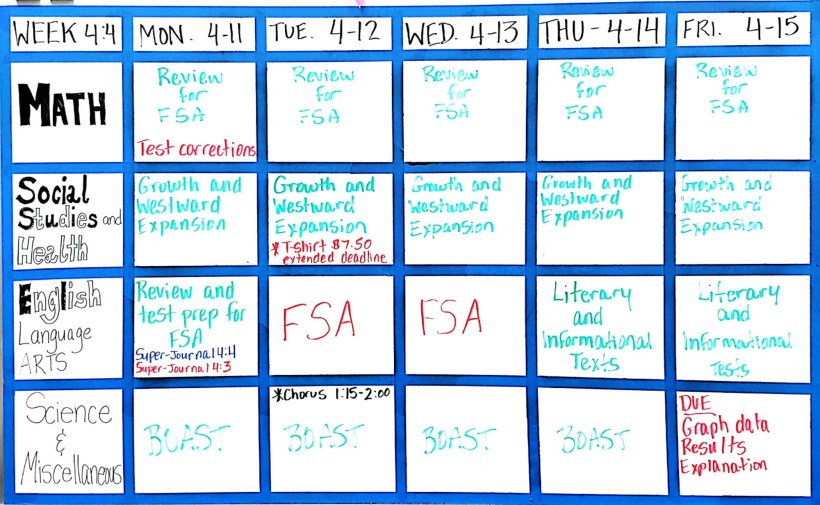 WEEK 4:4
MON. 4-11
TUE. 4-12
WED. 4-13
THU - 4-14
FRI. 4-15
MATH
Review
for
FSA
Test corrections
Review
for
FSA
Review
for
FSA
Review
for
FSA
Review
for
FSA
Social
Studies and
Health
Growth and
Westward
Expansion
Growth and
Westward
Expansion
*T-shirt $7.50
extended deadline
Growth and
Westward
Expansion
Growth and
Westward
Expansion
Growth and
Westward
Expansion
English
Language
ARTS
Review and
test prep for
FSA
Super-Journal 4:4
Super-Journal 4:3
FSA
FSA
Literary
and
Informational
Texts
Literary
and
Informational
Tests
Science
&
Miscellaneous
BOAST
*Chorus 1:15-2:00
BOAST
BOAST
BOAST
DUE
Graph data
Results
Explanation